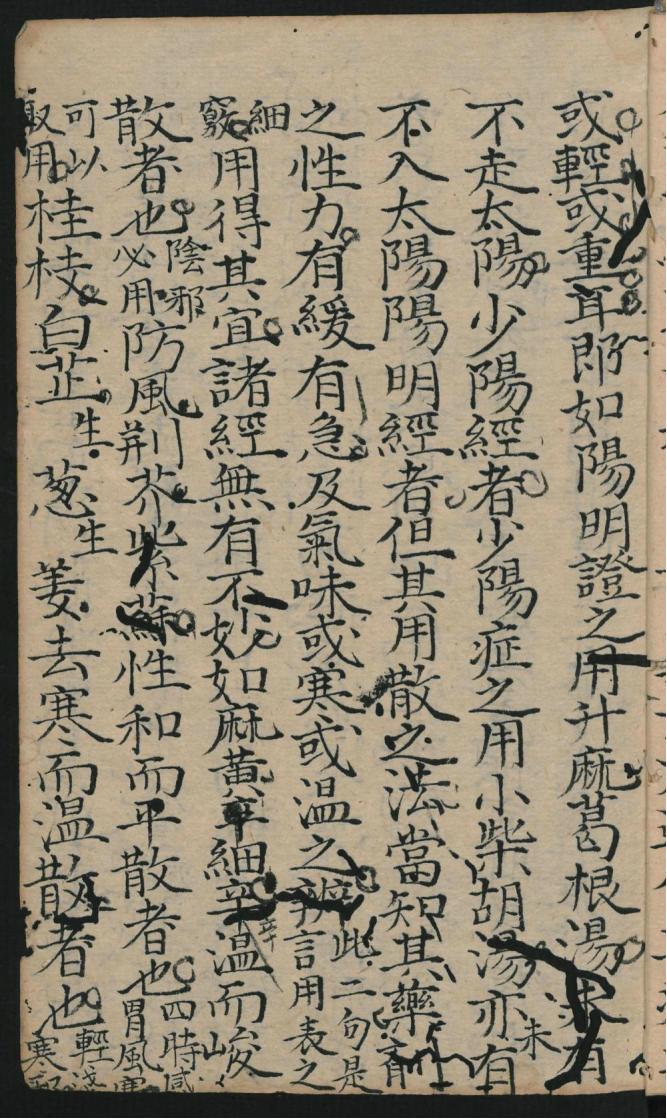 或輕或重耳即如陽明證之用升麻葛根湯未有
不走太陽少陽經者少陽症之用小柴胡湯亦未有
不入太陽陽明經者但其用散之法當知其藥
之性力有緩有急及氣味或寒或温之辨此二句是言用表之
細竅用得其宜諸經無有不妙如麻黄細辛温而峻
散者也陰邪必用防風荆芥紫蘇性和而平散者也四時感冒風寒
可以取用桂枝白芷生葱生姜去寒而温散者也輕淺寒